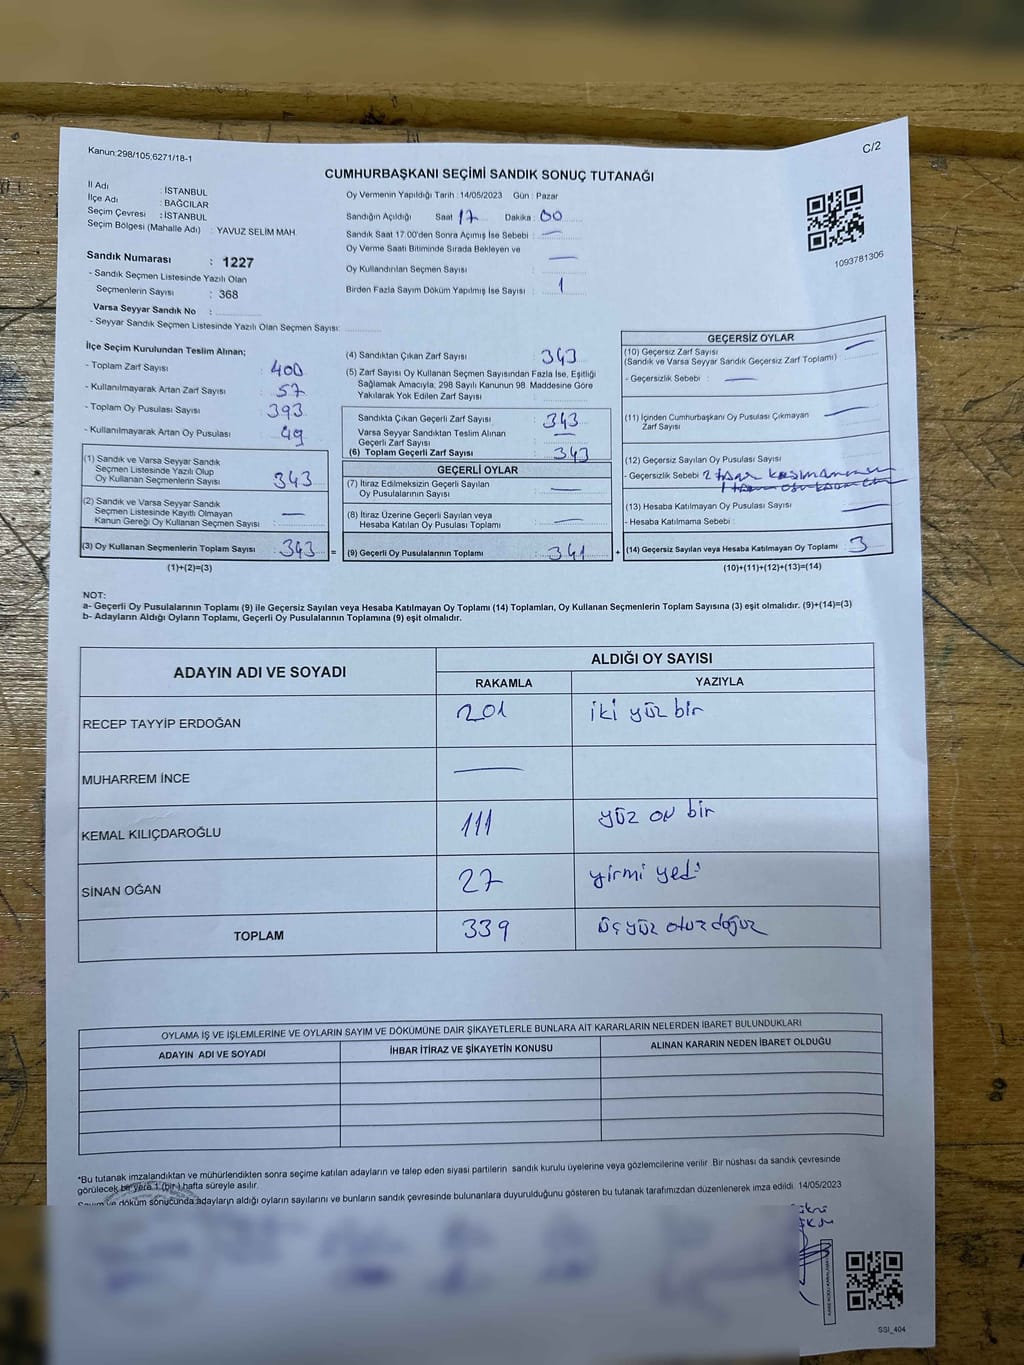 Kanun:298/105,6271/18-1
C/2
CUMHURBAŞKANI SEÇİMİ SANDIK SONUÇ TUTANAĞI
İl Adı : İSTANBUL
İlçe Adı : BAĞCILAR
Seçim Çevresi : İSTANBUL
Seçim Bölgesi (Mahalle Adı) : YAVUZ SELİM MAH.
Sandık Numarası : 1227
- Sandık Seçmen Listesinde Yazılı Olan
Seçmenlerin Sayısı : 368
Varsa Seyyar Sandık No :
- Seyyar Sandık Seçmen Listesinde Yazılı Olan Seçmen Sayısı:
Oy Vermenin Yapıldığı Tarih : 14/05/2023 Gün : Pazar
Sandığın Açıldığı Saat 17 Dakika : 00
Sandık Saat 17:00'den Sonra Açımış İse Sebebi : —
Oy Verme Saati Bitiminde Sırada Bekleyen ve
Oy Kullandırılan Seçmen Sayısı —
Birden Fazla Sayım Döküm Yapılmış İse Sayısı : 1
1093781306
İlçe Seçim Kurulundan Teslim Alınan;
- Toplam Zarf Sayısı : 400
- Kullanılmayarak Artan Zarf Sayısı : 57
- Toplam Oy Pusulası Sayısı : 393
- Kullanılmayarak Artan Oy Pusulası : 49
(1) Sandık ve Varsa Seyyar Sandık
Seçmen Listesinde Yazılı Olup
Oy Kullanan Seçmenlerin Sayısı : 343
(2) Sandık ve Varsa Seyyar Sandık
Seçmen Listesinde Kayıtlı Olmayan
Kanun Gereği Oy Kullanan Seçmen Sayısı : —
(3) Oy Kullanan Seçmenlerin Toplam Sayısı : 343 =
(1)+(2)=(3)
(4) Sandıktan Çıkan Zarf Sayısı : 343
(5) Zarf Sayısı Oy Kullanan Seçmen Sayısından Fazla İse, Eşitliği
Sağlamak Amacıyla, 298 Sayılı Kanunun 98. Maddesine Göre
Yakılarak Yok Edilen Zarf Sayısı :
Sandıkta Çıkan Geçerli Zarf Sayısı : 343
Varsa Seyyar Sandıktan Teslim Alınan
Geçerli Zarf Sayısı : —
(6) Toplam Geçerli Zarf Sayısı : 343
GEÇERLİ OYLAR
(7) İtiraz Edilmeksizin Geçerli Sayılan
Oy Pusulalarının Sayısı : —
(8) İtiraz Üzerine Geçerli Sayılan veya
Hesaba Katılan Oy Pusulası Toplamı : —
(9) Geçerli Oy Pusulalarının Toplamı : 341 +
GEÇERSİZ OYLAR
(10) Geçersiz Zarf Sayısı —
(Sandık ve Varsa Seyyar Sandık Geçersiz Zarf Toplamı) :
- Geçersizlik Sebebi : —
(11) İçinden Cumhurbaşkanı Oy Pusulası Çıkmayan —
Zarf Sayısı
(12) Geçersiz Sayılan Oy Pusulası Sayısı :
- Geçersizlik Sebebi 2 tane
(13) Hesaba Katılmayan Oy Pusulası Sayısı : —
- Hesaba Katılmama Sebebi :
(14) Geçersiz Sayılan veya Hesaba Katılmayan Oy Toplamı : 3
(10)+(11)+(12)+(13)=(14)
NOT:
a- Geçerli Oy Pusulalarının Toplamı (9) ile Geçersiz Sayılan veya Hesaba Katılmayan Oy Toplamı (14) Toplamları, Oy Kullanan Seçmenlerin Toplam Sayısına (3) eşit olmalıdır. (9)+(14)=(3)
b- Adayların Aldığı Oyların Toplamı, Geçerli Oy Pusulalarının Toplamına (9) eşit olmalıdır.
ADAYIN ADI VE SOYADI
ALDIĞI OY SAYISI
RAKAMLA YAZIYLA
RECEP TAYYİP ERDOĞAN 201 iki yüz bir
MUHARREM İNCE —
KEMAL KILIÇDAROĞLU 111 yüz on bir
SİNAN OĞAN 27 yirmi yedi
TOPLAM 339 üçyüz otuzdoğuz
OYLAMA İŞ VE İŞLEMLERİNE VE OYLARIN SAYIM VE DÖKÜMÜNE DAİR ŞİKAYETLERLE BUNLARA AİT KARARLARIN NELERDEN İBARET BULUNDUKLARI
ADAYIN ADI VE SOYADI İHBAR İTİRAZ VE ŞİKAYETİN KONUSU ALINAN KARARIN NEDEN İBARET OLDUĞU
*Bu tutanak imzalandıktan ve mühürlendikten sonra seçime katılan adayların ve talep eden siyasi partilerin sandık kurulu üyelerine veya gözlemcilerine verilir. Bir nüshası da sandık çevresinde
görülecek bir yere 1 (bir) hafta süreyle asılır.
Sayım ve döküm sonucunda adayların aldığı oyların sayılarını ve bunların sandık çevresinde bulunanlara duyurulduğunu gösteren bu tutanak tarafımızdan düzenlenerek imza edildi. 14/05/2023
SSI_404